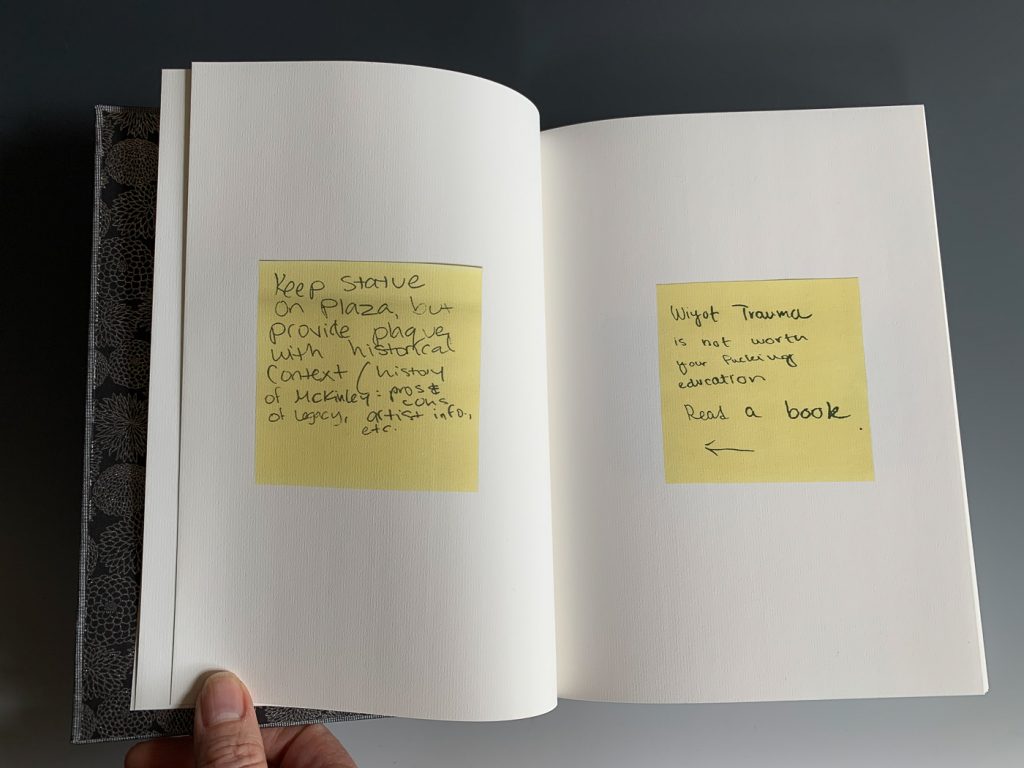 Keep statue
on Plaza, but
provide plaque,
with historical
context / history
of McKinley: pros &
cons
of legacy, artist info.,
etc.
Wiyot Trauma
is not worth
your fucking
education
Read a book.
←